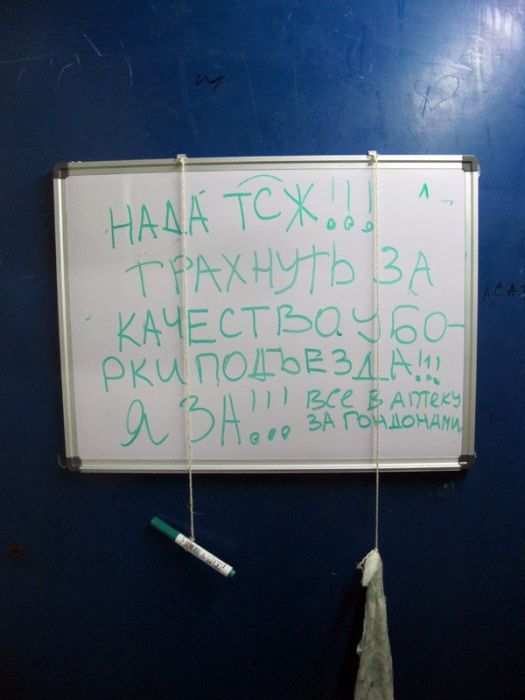 НАДА ТСЖ!!!
ТРАХНУТЬ ЗА
КАЧЕСТВО УБО-
РКИ ПОДЪЕЗДА!!!
Я ЗА!!!
ВСЕ В АПТЕКУ
ЗА ГОНДОНАМИ